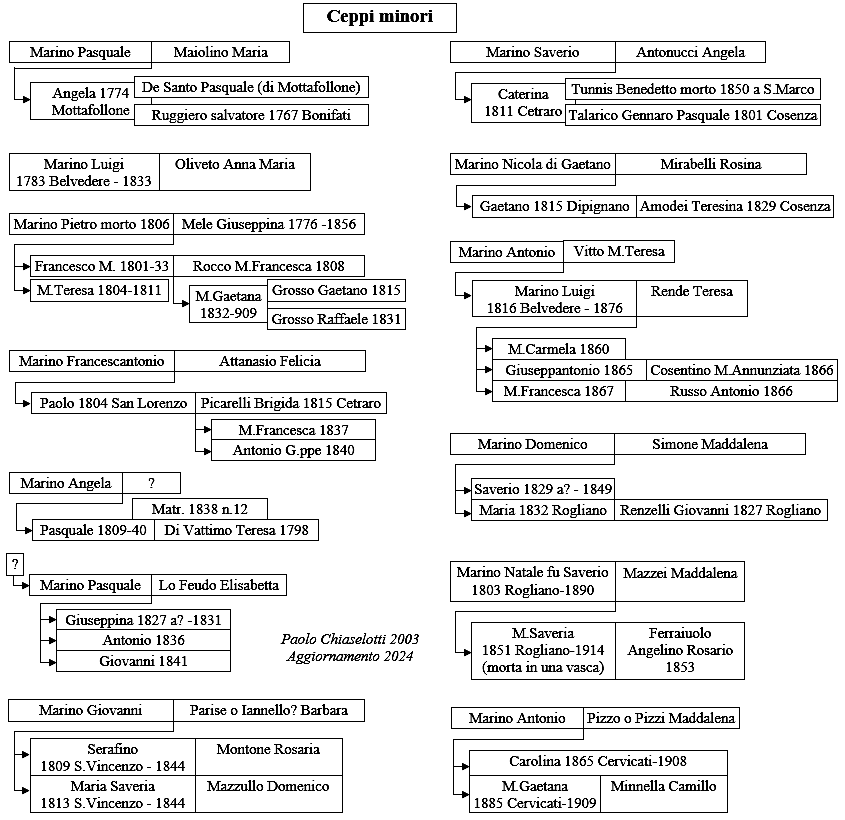 Ceppi minori
Marino Pasquale
Maiolino Maria
Angela 1774
Mottafollone
De Santo Pasquale (di Mottafollone)
Ruggiero salvatore 1767 Bonifati
Marino Luigi
1783 Belvedere - 1833
Oliveto Anna Maria
Marino Pietro morto 1806
Mele Giuseppina 1776 -1856
Francesco M. 1801-33
Rocco M.Francesca 1808
M.Teresa 1804-1811
M.Gaetana
1832-909
Grosso Gaetano 1815
Grosso Raffaele 1831
Marino Francescantonio
Attanasio Felicia
Paolo 1804 San Lorenzo
Picarelli Brigida 1815 Cetraro
M.Francesca 1837
Antonio G.ppe 1840
Marino Angela
?
Matr. 1838 n.12
Pasquale 1809-40
Di Vattimo Teresa 1798
?
Marino Pasquale
Lo Feudo Elisabetta
Giuseppina 1827 a? -1831
Antonio 1836
Giovanni 1841
Paolo Chiaselotti 2003
Aggiornamento 2024
Marino Giovanni
Parise o Iannello? Barbara
Serafino
1809 S.Vincenzo - 1844
Montone Rosaria
Maria Saveria
1813 S.Vincenzo - 1844
Mazzullo Domenico
Marino Saverio
Antonucci Angela
Caterina
1811 Cetraro
Tunnis Benedetto morto 1850 a S.Marco
Talarico Gennaro Pasquale 1801 Cosenza
Marino Nicola di Gaetano
Mirabelli Rosina
Gaetano 1815 Dipignano
Amodei Teresina 1829 Cosenza
Marino Antonio
Vitto M.Teresa
Marino Luigi
1816 Belvedere - 1876
Rende Teresa
M.Carmela 1860
Giuseppantonio 1865
Cosentino M.Annunziata 1866
M.Francesca 1867
Russo Antonio 1866
Marino Domenico
Simone Maddalena
Saverio 1829 a? - 1849
Maria 1832 Rogliano
Renzelli Giovanni 1827 Rogliano
Marino Natale fu Saverio
1803 Rogliano-1890
Mazzei Maddalena
M.Saveria
1851 Rogliano-1914
(morta in una vasca)
Ferraiuolo
Angelino Rosario
1853
Marino Antonio
Pizzo o Pizzi Maddalena
Carolina 1865 Cervicati-1908
M.Gaetana
1885 Cervicati-1909
Minnella Camillo